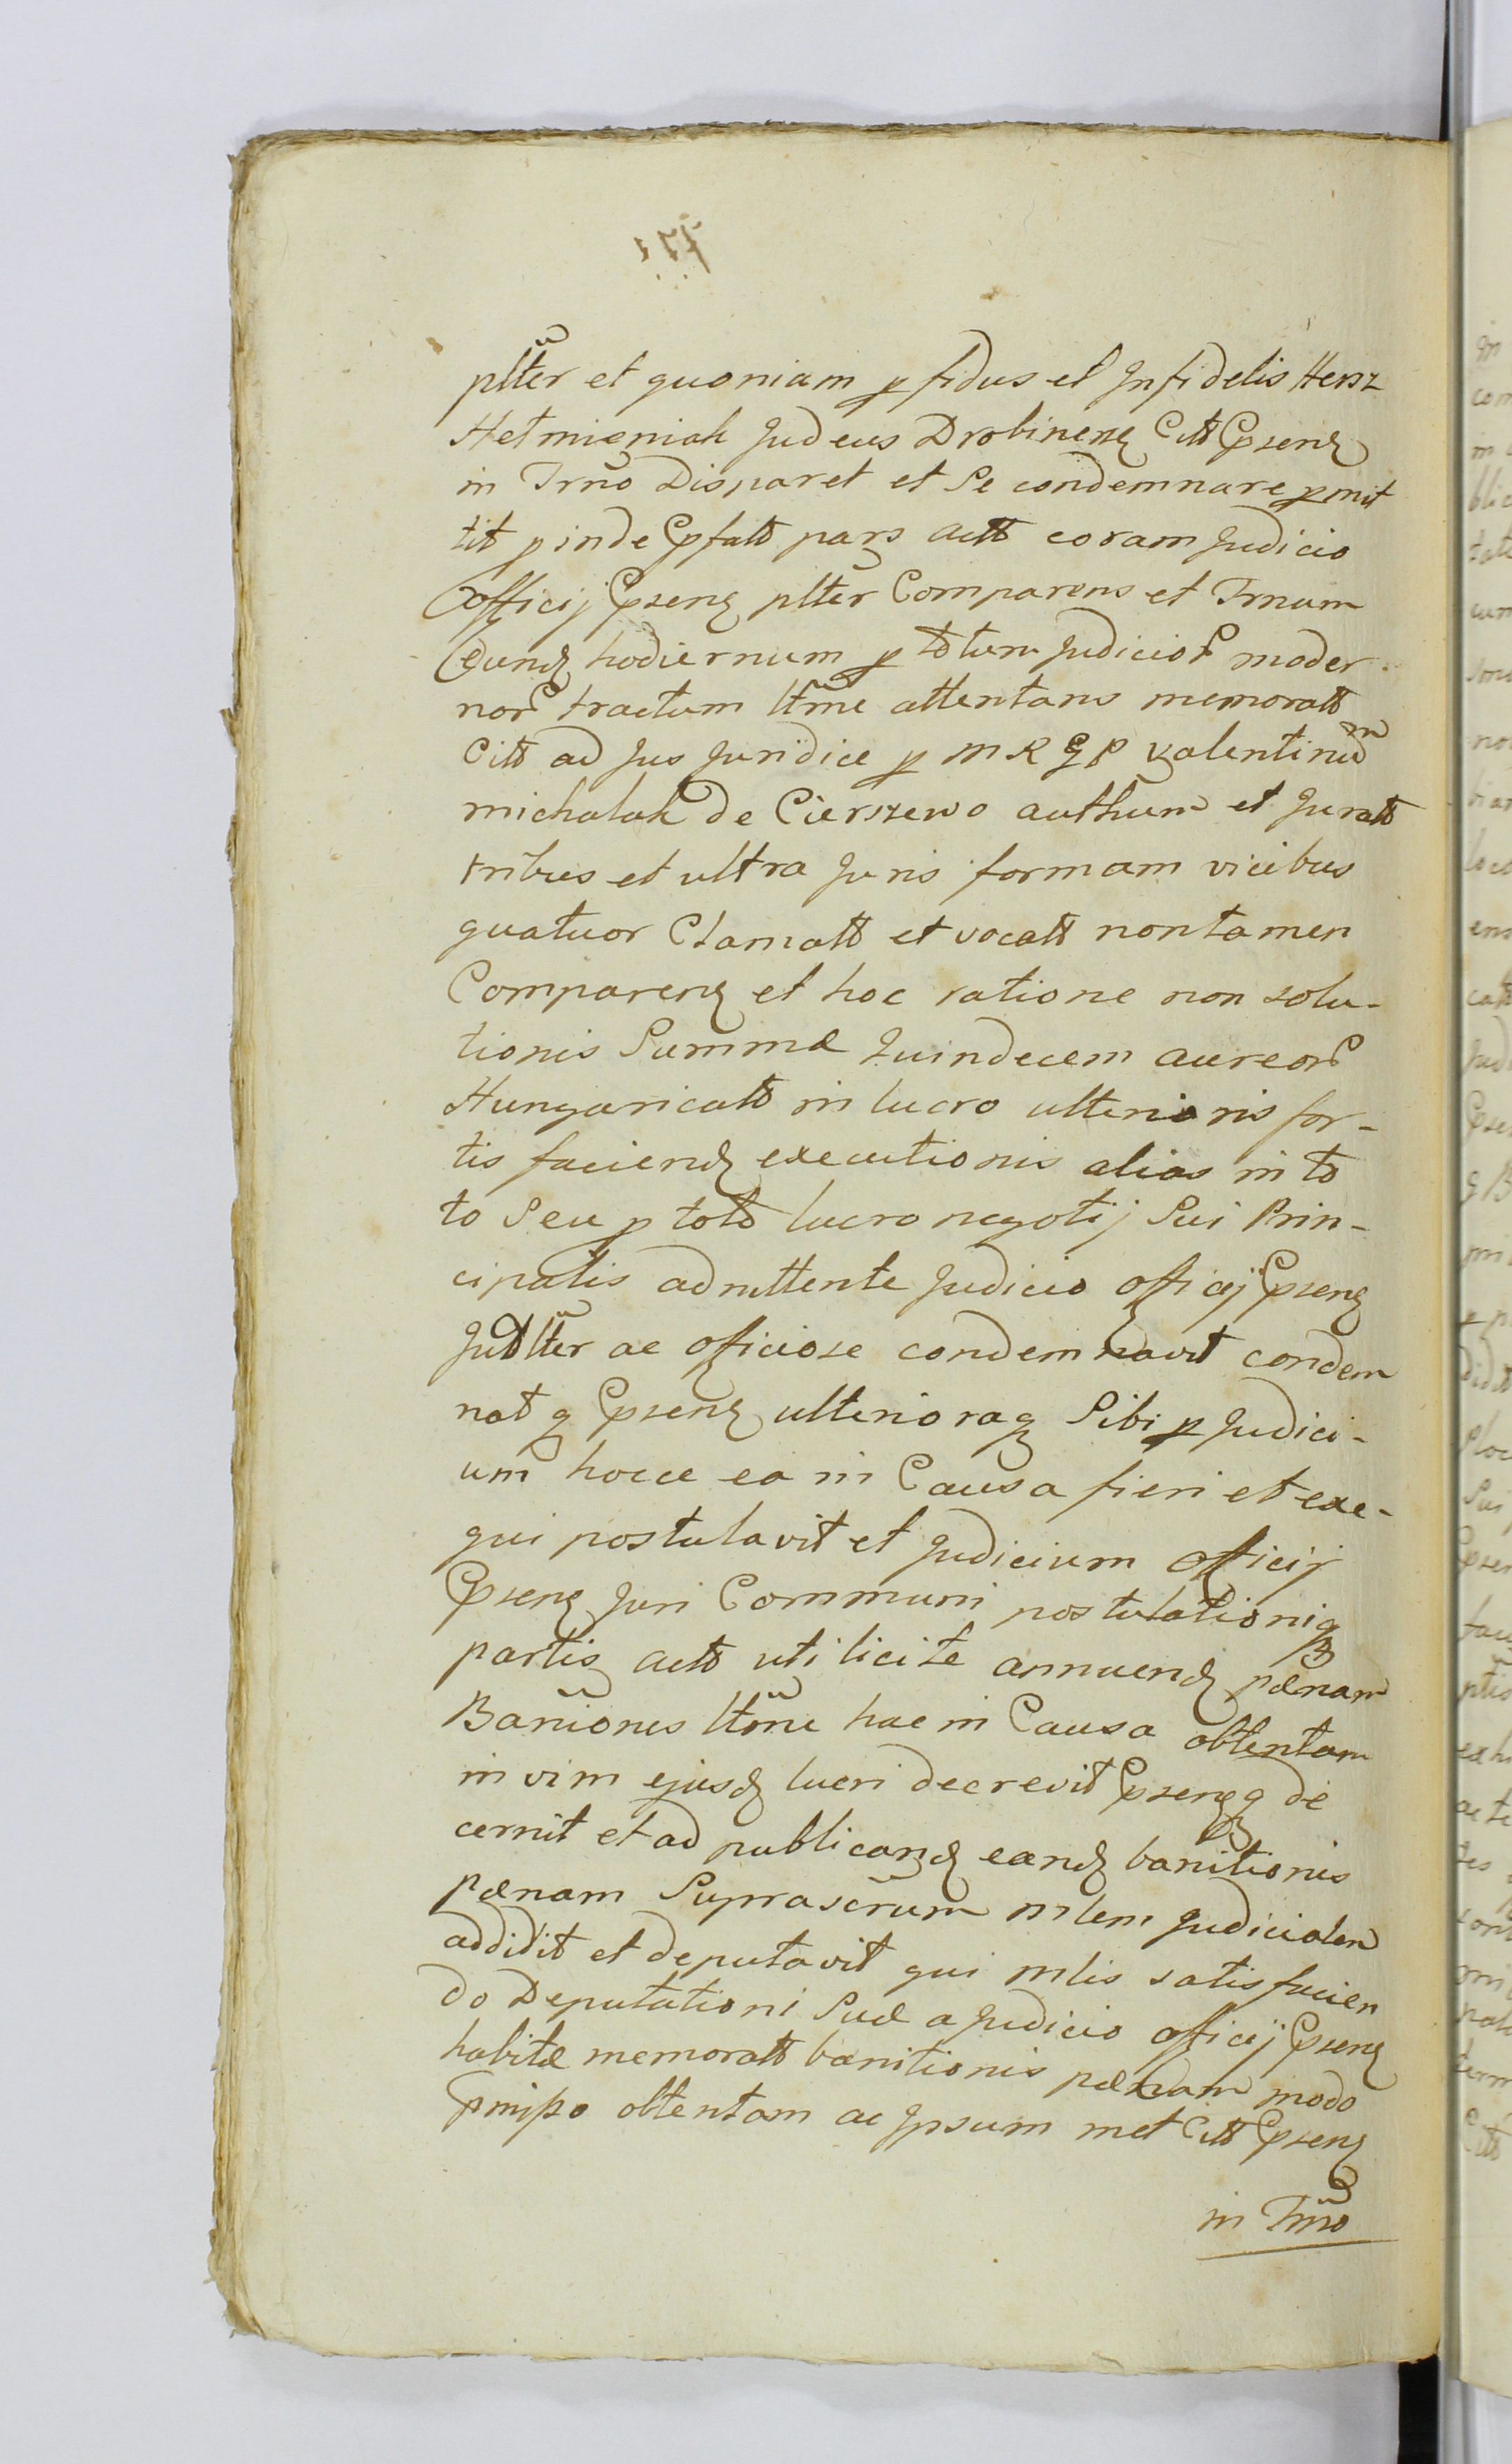 pltter et quoniam p fidus et Infidelis Hersz
Hetmieniak Judeus Drobinens Citt Psens
in Trno Disparet et Se condemnare p mit
tit p inde Pfatt pars actt coram Judicio
Officij Psens pltter Comparens et Trnum
Eund hodiernum p totum Judicior moder
nor tractum lttme attentans memoratt
Citt ad Jus Juridice p M R G P Valentinum
Michalak de Cierszewo authum et Juratt
tribus et ultra Juris formam vicibus
quatuor Clamatt et vocatt non tamen
Comparens et hoc ratione non solu-
tionis Summæ Quindecem aureor
Hungaricatt in lucro ulterioris for-
tis faciend executionis alias in to
to Seu p toto lucro negotij Sui Prin-
cipalis admittente Judicio officij Psens
Judltter ac officiose condemnavit condem
nat q Psens ulterioraq Sibi p Judici-
um hocce ea in Causa fieri et exe-
qui postulavit et Judicium officij
Psens Juri Communi postulationiq
partis actt uti licite annuend pænam
Banionis lttme hac in Causa obtentam
in vim ejusd lucri decrevit Psensq de
cernit et ad publicand eand banitionis
pænam Suprascrum mlem Judicialem
addidit et deputavit qui mlis satisfacien
do Deputationi Suæ a Judicio officij Psens
habitæ memoratt banitionis pænam modo
Pmisso obtentam ac Ipsum met Citt Psens
in Trno